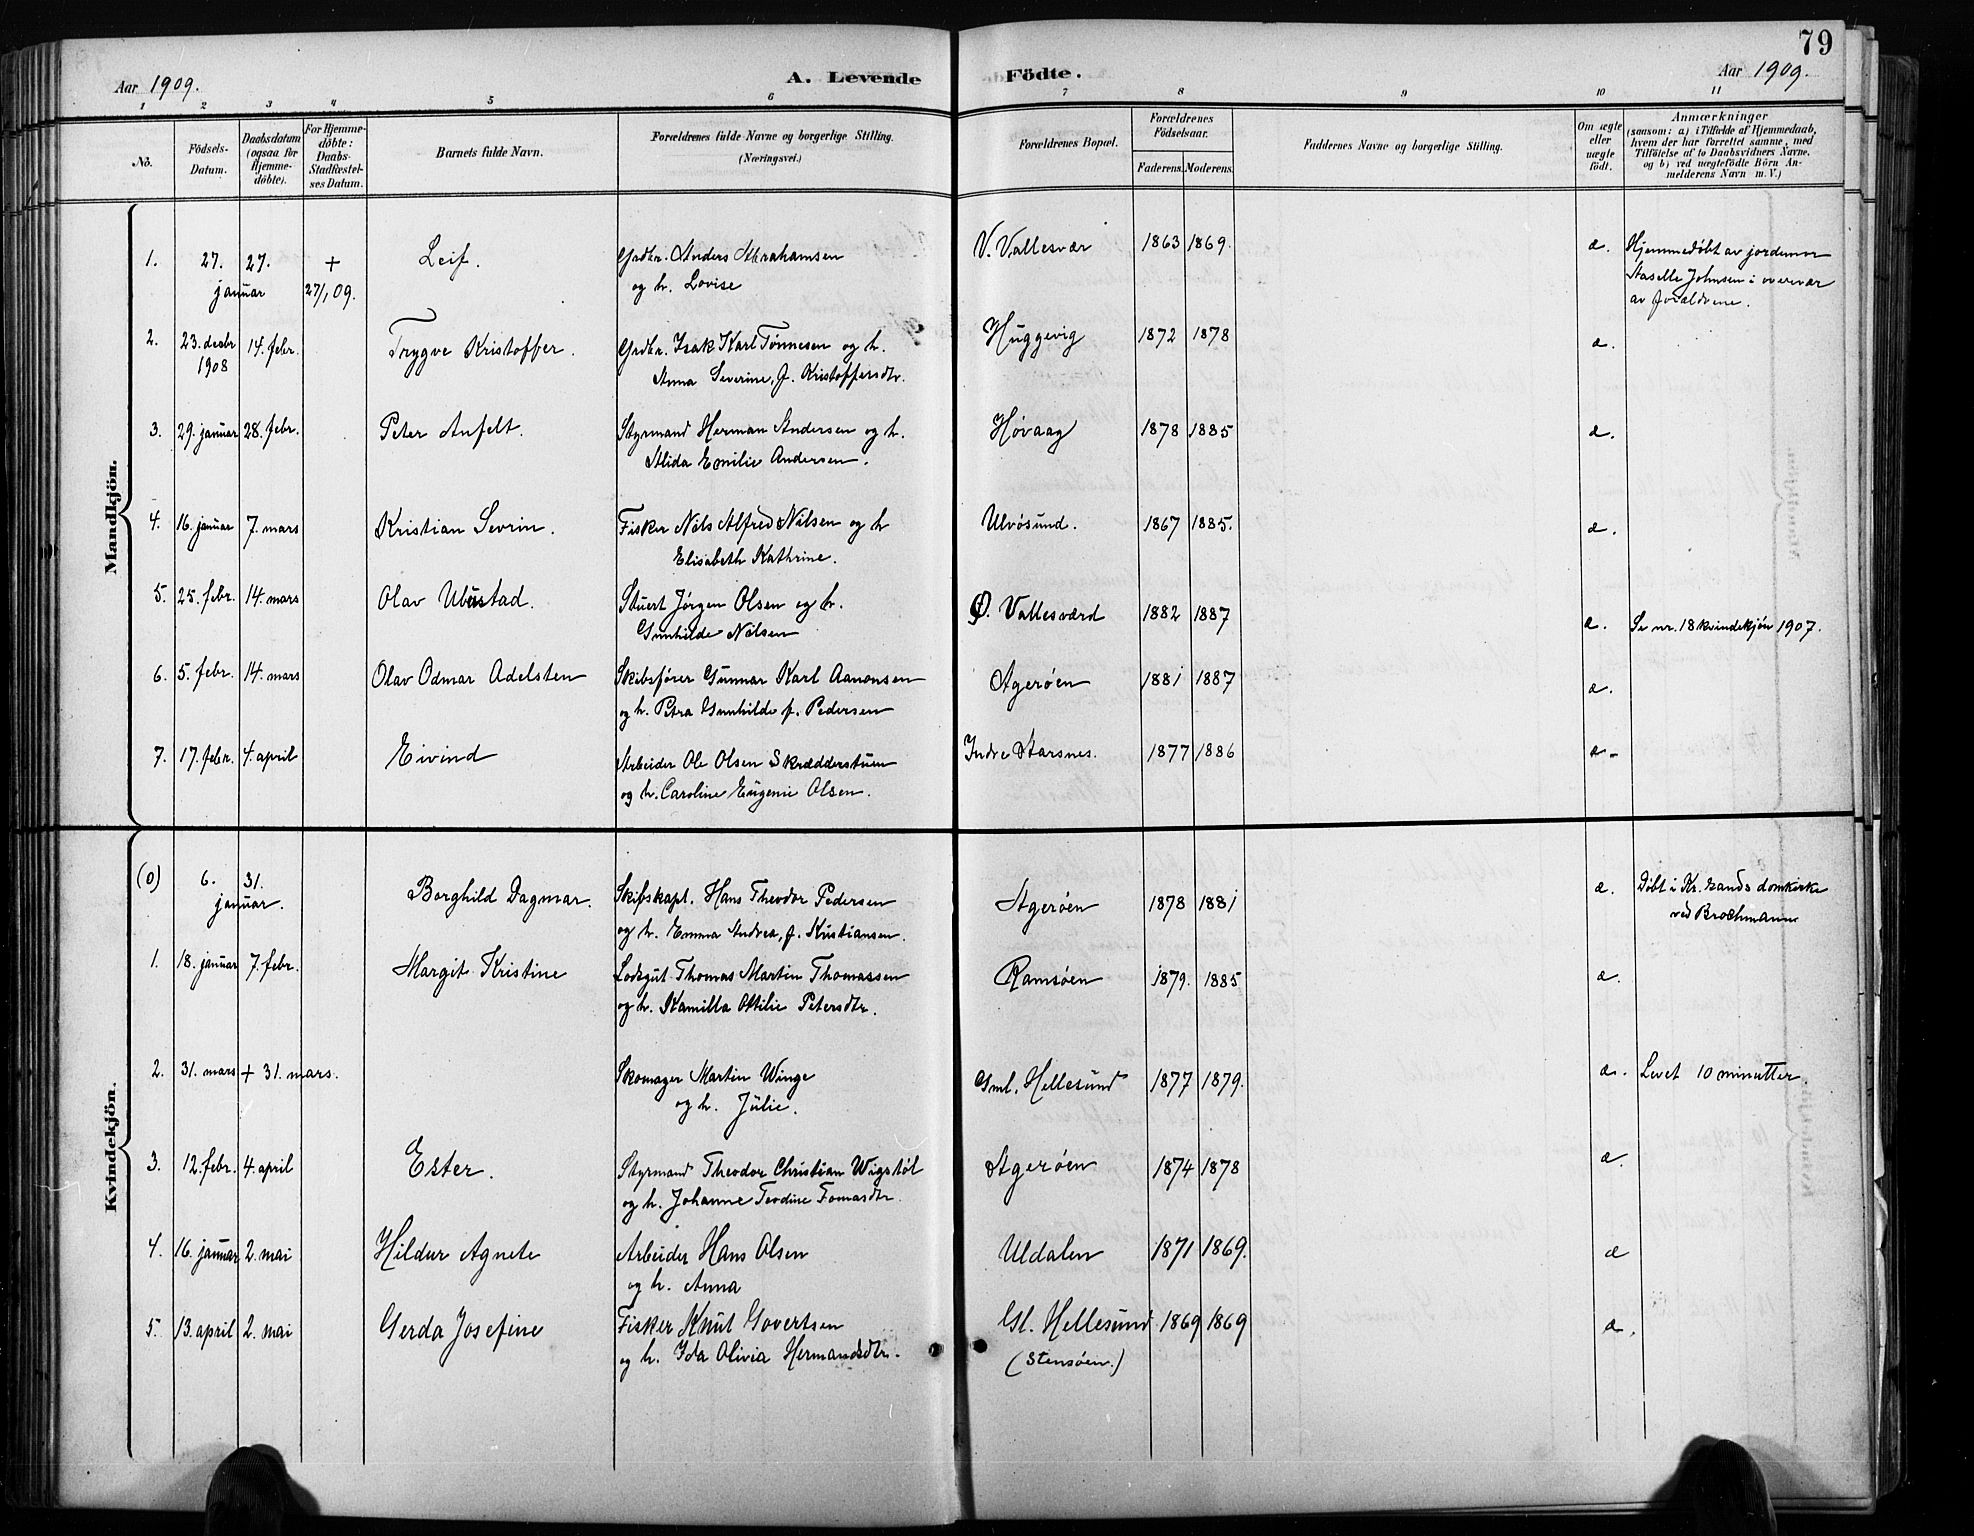 79
Aar 1909.
A. Levende Födte.
Aar 1909.
1 2 3 4 5 6 7 8 9 10 11
No.
Födsels-
Datum.
Daabsdatum
(ogsaa for
Hjemme-
döbte).
For Hjemme-
döbte:
Daabs-
Stadfæstel-
ses Datum.
Barnets fulde Navn.
Forældrenes fulde Navne og borgerlige Stilling.
(Næringsvei.)
Forældrenes Bopæl.
Forældrenes
Födselsaar.
Faderens. Moderens.
Faddernes Navne og borgerlige Stilling.
Om ægte
eller
uægte
födt.
Anmærkninger
(saasom: a) i Tilfælde af Hjemmedaab,
hvem der har forrettet samme, med
Tilföielse af to Daabsvidners Navne.
og b) ved uægtefödte Börn An-
melderens Navn m. V.)
Mandkjön.
1. 27. 27. + Leif. Grdbr. Anders Abrahamsen V. Vallesvær 1863 1869. æ. Hjemmedøbt av jordemor
januar 27/1 09. og h. Lovise Johnsen i overvær
av forældrene.
2. 23. decbr 14. febr. Trygve Kristoffer. Grdbr. Isak Karl Tønnesen og h. Huggevig 1872 1878 æ.
1908 Anna Severine, f. Kristoffersdtr.
3. 29. januar 28. febr. Peter Anfelt. Styrmand Herman Andersen og h. Høvaag 1878 1885 æ.
Alida Emilie Andersen.
4. 16. januar 7. mars Kristian Sevrin. Fisker Nils Alfred Nilsen og h Ulvösund. 1867 1885. æ.
Elisabeth Kathrine.
5. 25. febr. 14. mars Olav Stuert Jørgen Olsen og h. Ø. Vallesværd 1882 1887 æ. Se nr. 18 kvindekjön 1907.
Gunhilde Nilsen
6. 5. febr. 14. mars Olav Odmar Adelsten Skibsfører Gunnar Karl Aanonsen Agerøen 1881 1887 æ.
og h. Petra Gunhilde f. Pedersen
7. 17. febr. 4. april Eivind Arbeider Ole Olsen Skrædderstuen Indre Aarsnes. 1877 1886 æ.
og h. Caroline Eugenie Olsen.
Kvindekjön.
(0) 6. 31. Borghild Dagmar. Skibskapt. Hans Theodor Pedersen Agerøen 1878 1881 æ. Døbt i Kr.sands domkirke
januar. og h. Emma Andrea, f. Kristiansen. ved Brochmann
1. 18. januar 7. febr. Margit Kristine Lodsgut Thomas Martin Thomassen Ramsøen 1879. 1885 æ.
og h. Kamilla Ottilie Petersdtr.
2. 31. mars + 31. mars. Skomager Martin Winge Gml. Hellesund 1877 1879. æ. Levet 10 minutter.
og h. Julie.
3. 12. febr. 4. april Ester. Styrmand Theodor Christian Wigstöl Agerøen 1874 1878 æ.
og h. Johanne Teodine Tomasdtr.
4. 16. januar 2. mai Hildur Agnete Arbeider Hans Olsen Uldalen 1871 1869. æ
og h. Anna
5. 13. april 2. mai Gerda Josefine Fisker Knut Govertsen Gl. Hellesund 1869 1869 æ.
og h. Ida Olivia Hermandsdtr. (Stensøen.)